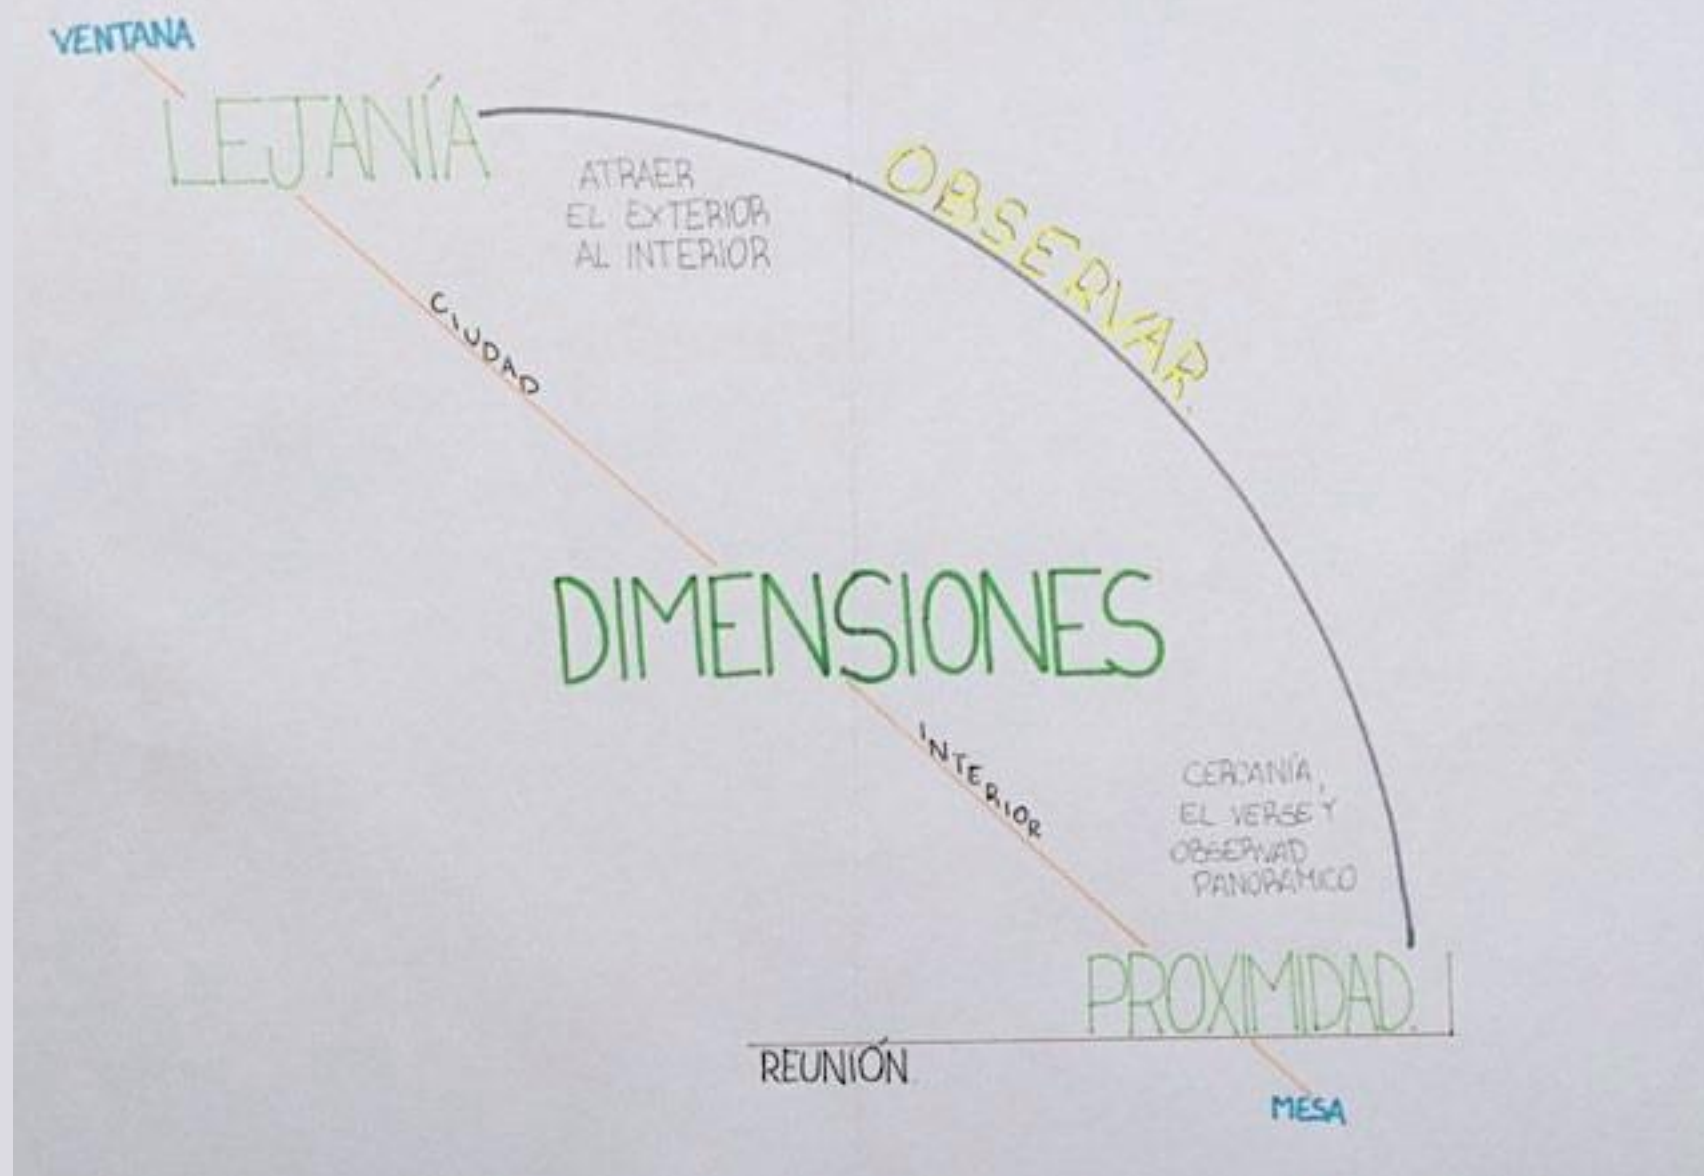 VENTANA
LEJANÍA
ATRAER
EL EXTERIOR
AL INTERIOR
OBSERVAR.
CIUDAD
DIMENSIONES
INTERIOR
CERCANÍA,
EL VERSE Y
OBSERVAD
PANORAMICO
PROXIMIDAD.
REUNIÓN
MESA